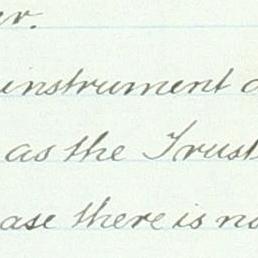 instrument
as the Trust
ase there is no